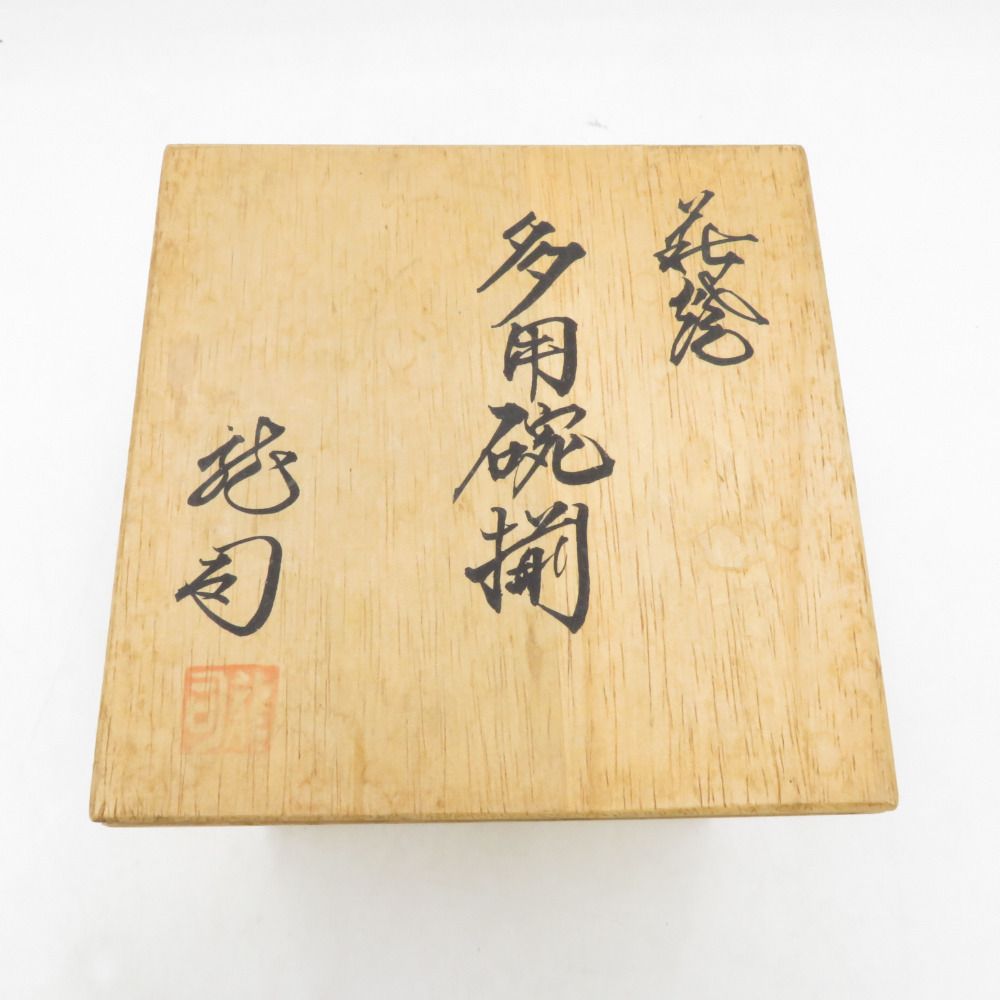 萩焼
多用碗揃
龍司